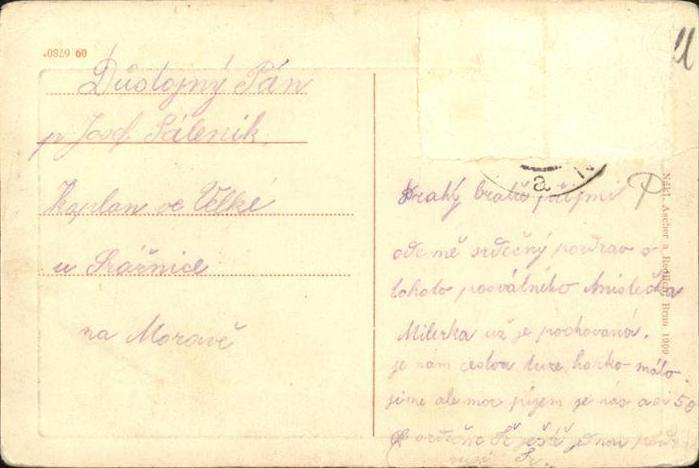 09 0780
Důstojný Pán
p Josef Sálenik
Kaplan ve Velké
u Strážnice
na Moravě
Drahý bratře přijmi
ode mě srdečný pozdrav s
tohoto posvátného místečka
Milerka už je pochovaná.
je nám cestou tuze horko málo
jíme ale moc pijem je nás asi 50
srdečně Tě ještě jednou
Nákl. Ascher a Redlich, Brno 1909